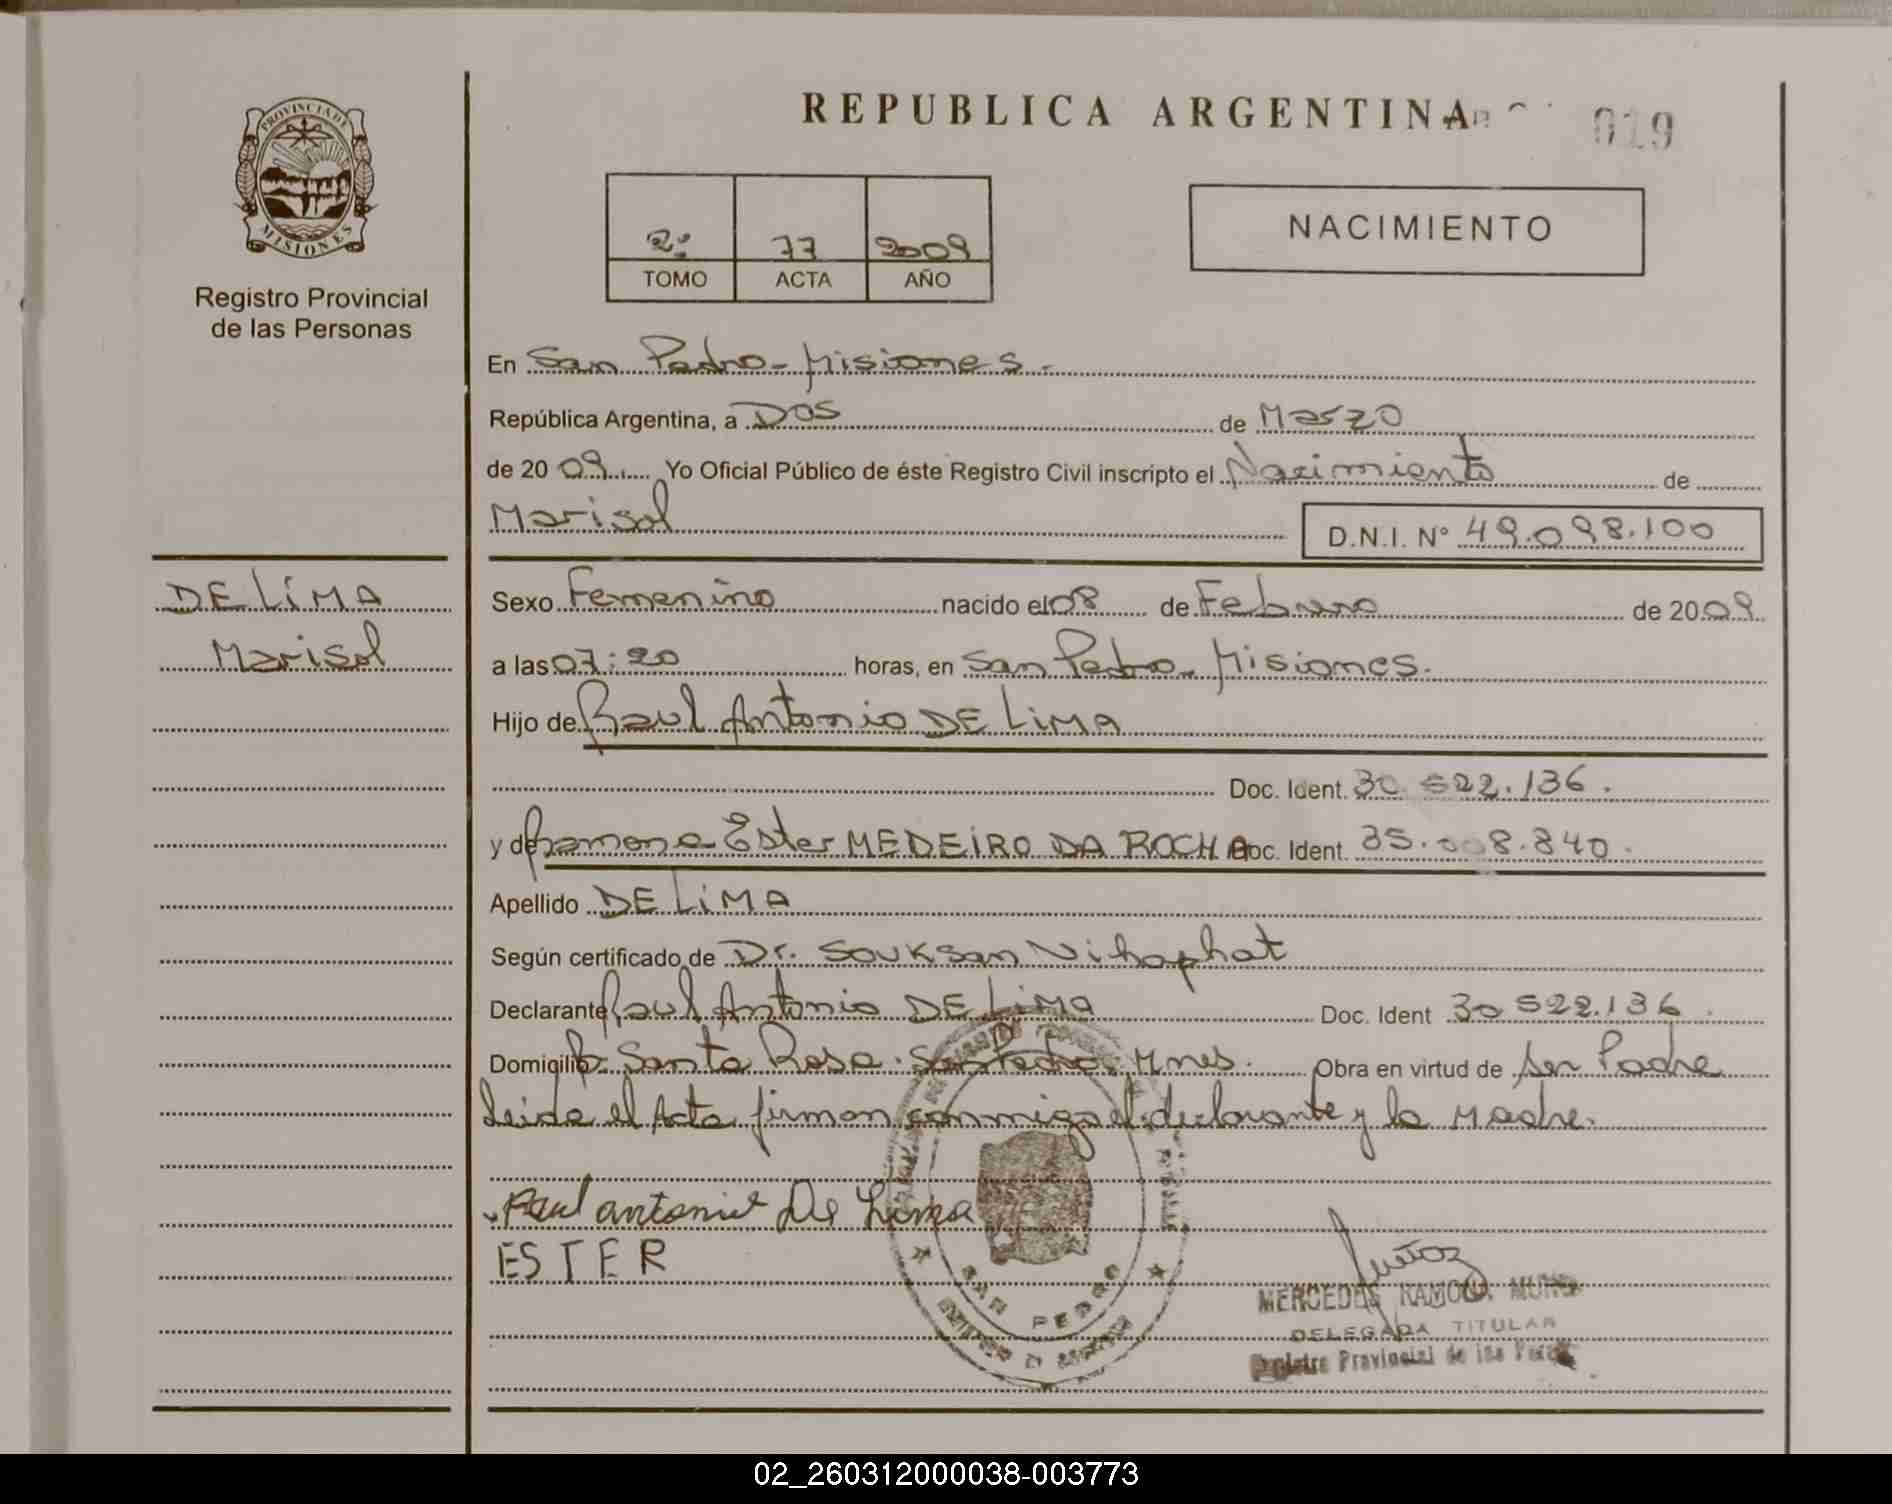 REPUBLICA ARGENTINA
019
PROVINCIA DE MISIONES
Registro Provincial
de las Personas
2º 77 2009
TOMO ACTA AÑO
NACIMIENTO
En San Pedro - Misiones.-
República Argentina, a DOS de Marzo
de 20 09 Yo Oficial Público de éste Registro Civil inscripto el Nacimiento de
Marisol D.N.I. Nº 49.098.100
DE LIMA
Marisol
Sexo Femenino nacido el 08 de Febrero de 2009
a las 07:20 horas, en San Pedro - Misiones.
Hijo de Raul Antonio DE LIMA
Doc. Ident. 30.522.136.
y de Ramona Ester MEDEIRO DA ROCHA Doc. Ident. 35.008.840.
Apellido DE LIMA
Según certificado de Dr. Souksan Vihaphat
Declarante Raul Antonio DE LIMA Doc. Ident 30.522.136.
Domicilio Bº Santa Rosa. San Pedro. Mnes. Obra en virtud de ser Padre
leida el Acta firman conmigo el declarante y la Madre.
Raul antonio De Lima
ESTER
SAN PEDRO
Muñoz
MERCEDES RAMONA MUÑOZ
DELEGADA TITULAR
Registro Provincial de las Personas
02_260312000038-003773